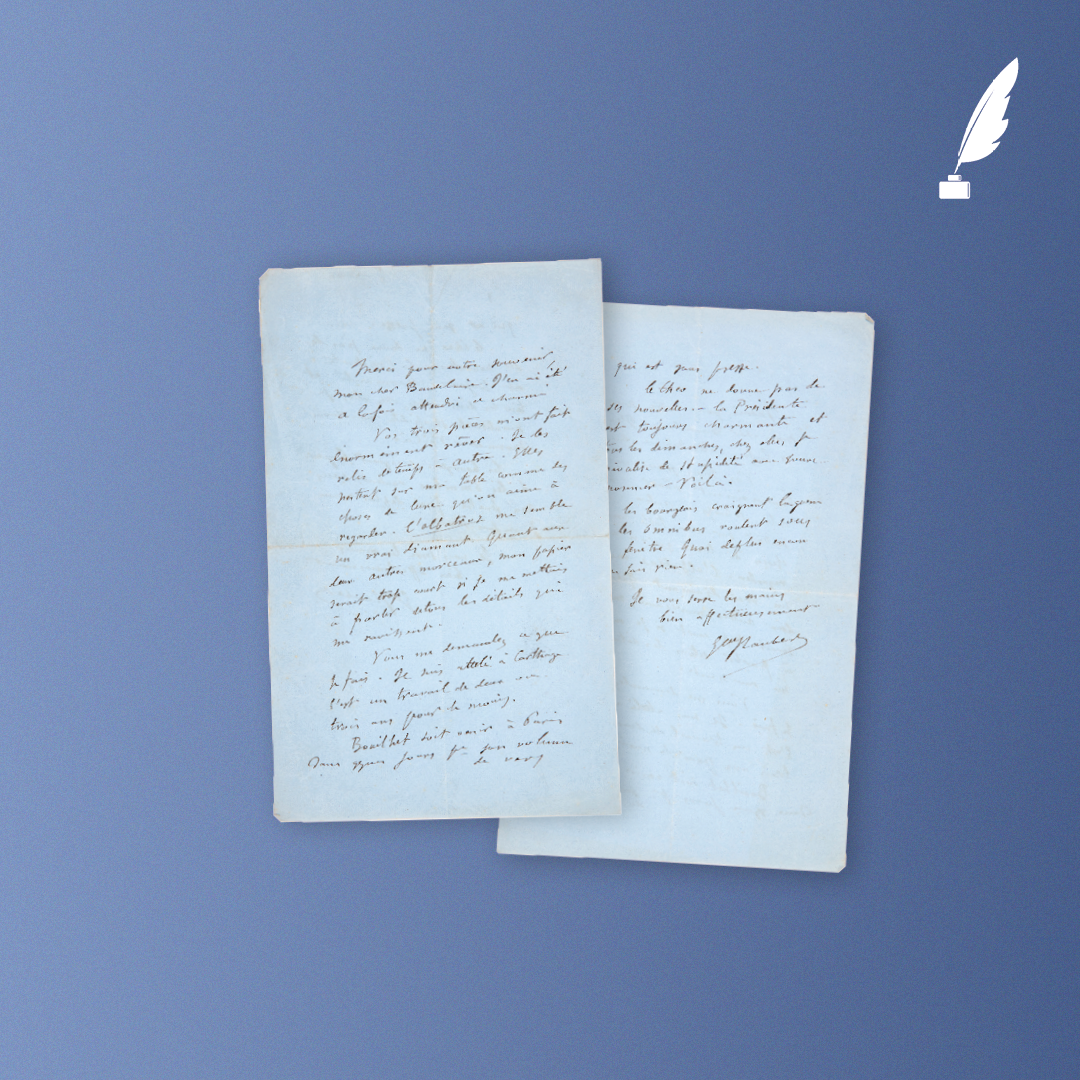 Merci pour votre souvenir,
mon cher Baudelaire. J'en ai été
à la fois attendri et charmé.
Vos trois pièces m'ont fait
énormément rêver. Je les
relis de temps à autre. Elles
restent sur ma table comme des
choses de luxe qu'on aime à
regarder. L'albatros me semble
un vrai diamant. Quant aux
deux autres morceaux, mon papier
serait trop court si je me mettais
à parler de tous les détails qui
me ravissent.
Vous me demandez ce que
je fais. Je suis attelé à Carthage.
C'est un travail de deux ou
trois ans pour le moins.
Bouilhet doit venir à Paris
dans qques jours pr son volume
de vers
qui est sous presse.
le Théo ne donne pas de
ses nouvelles. – la Présidente
est toujours charmante et
tous les dimanches, chez elle, je
rivalise de stupidité avec Henri
Monnier – Voilà.
les bourgeois craignent la guerre
les omnibus roulent sous
fenêtre Quoi de plus encore
je sais rien.
Je vous serre les mains
bien affectueusement
Gve Flaubert